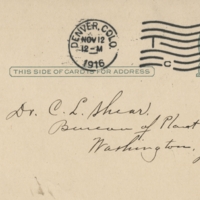 DENVER, COLO.
NOV 12
12-M
1916
1
C
THIS SIDE OF CARD IS FOR ADDRESS
Dr. C. L. Shear.
Bureau of Plant
Washington,